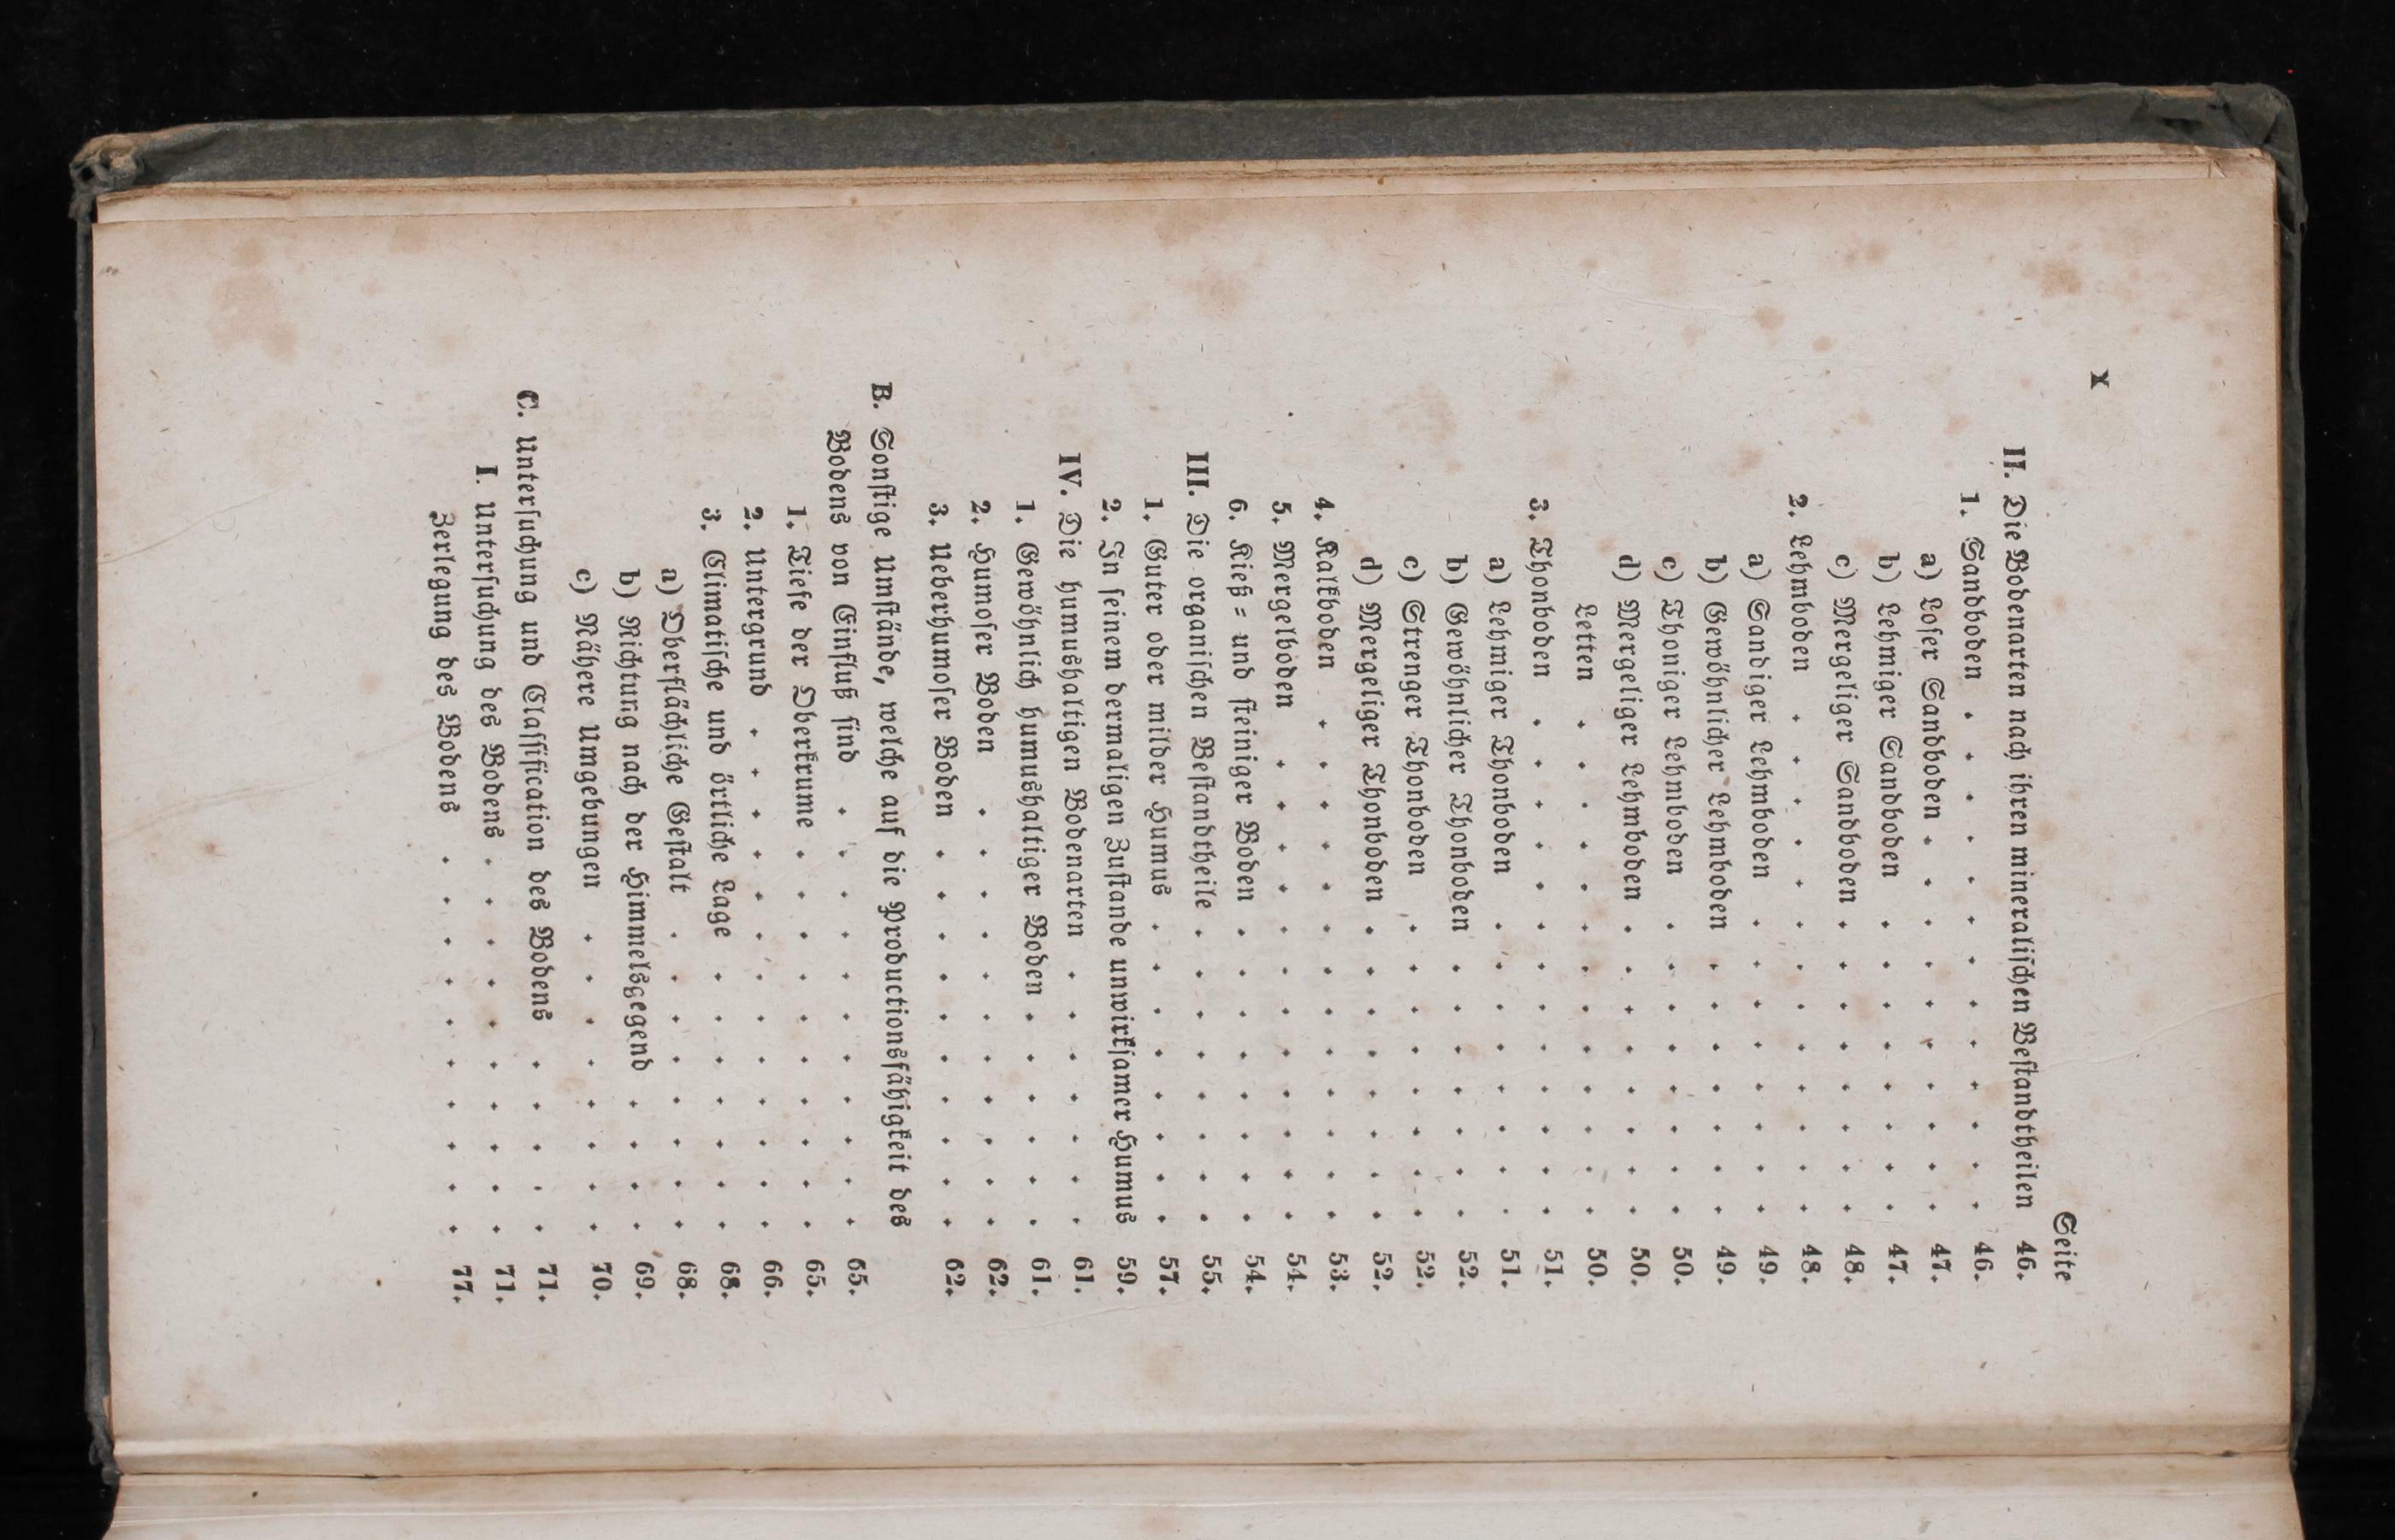 X
Seite
II. Die Bodenarten nach ihren mineralischen Bestandtheilen 46.
1. Sandboden . . . . . . . . . . . . . 46.
a) Loser Sandboden . . . . . . . . . . 47.
b) Lehmiger Sandboden . . . . . . . . 47.
c) Mergeliger Sandboden . . . . . . . . 48.
2. Lehmboden . . . . . . . . . . . . . 48.
a) Sandiger Lehmboden . . . . . . . . 49.
b) Gewöhnlicher Lehmboden . . . . . . . 49.
c) Thoniger Lehmboden . . . . . . . . 50.
d) Mergeliger Lehmboden . . . . . . . . 50.
Letten . . . . . . . . . . . . . 50.
3. Thonboden . . . . . . . . . . . . . 51.
a) Lehmiger Thonboden . . . . . . . . 51.
b) Gewöhnlicher Thonboden . . . . . . . 52.
c) Strenger Thonboden . . . . . . . . 52.
d) Mergeliger Thonboden . . . . . . . . 52.
4. Kalkboden . . . . . . . . . . . . . 53.
5. Mergelboden . . . . . . . . . . . . 54.
6. Kieß= und steiniger Boden . . . . . . . . 54.
III. Die organischen Bestandtheile . . . . . . . . 55.
1. Guter oder milder Humus . . . . . . . . 57.
2. In seinem dermaligen Zustande unwirksamer Humus 59.
IV. Die humushaltigen Bodenarten . . . . . . . 61.
1. Gewöhnlich humushaltiger Boden . . . . . . 61.
2. Humoser Boden . . . . . . . . . . . 62.
3. Ueberhumoser Boden . . . . . . . . . . 62.
B. Sonstige Umstände, welche auf die Productionsfähigkeit des
Bodens von Einfluß sind . . . . . . . . . . . 65.
1. Tiefe der Oberkrume . . . . . . . . . . 65.
2. Untergrund . . . . . . . . . . . . . 66.
3. Climatische und örtliche Lage . . . . . . . 68.
a) Oberflächliche Gestalt . . . . . . . . 68.
b) Richtung nach der Himmelsgegend . . . . 69.
c) Nähere Umgebungen . . . . . . . . 70.
C. Untersuchung und Classification des Bodens . . . . . 71.
I. Untersuchung des Bodens . . . . . . . . . . 71.
Zerlegung des Bodens . . . . . . . . . . 77.